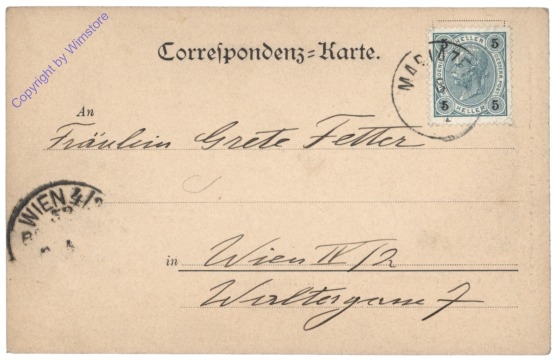 Copyright by Wimstore
Correspondenz-Karte.
MARIAZELL
5 5
HELLER HELLER
5 5
An
Fräulein Grete Fetter
WIEN 4/2
in Wien IV/2
Waltergasse 7